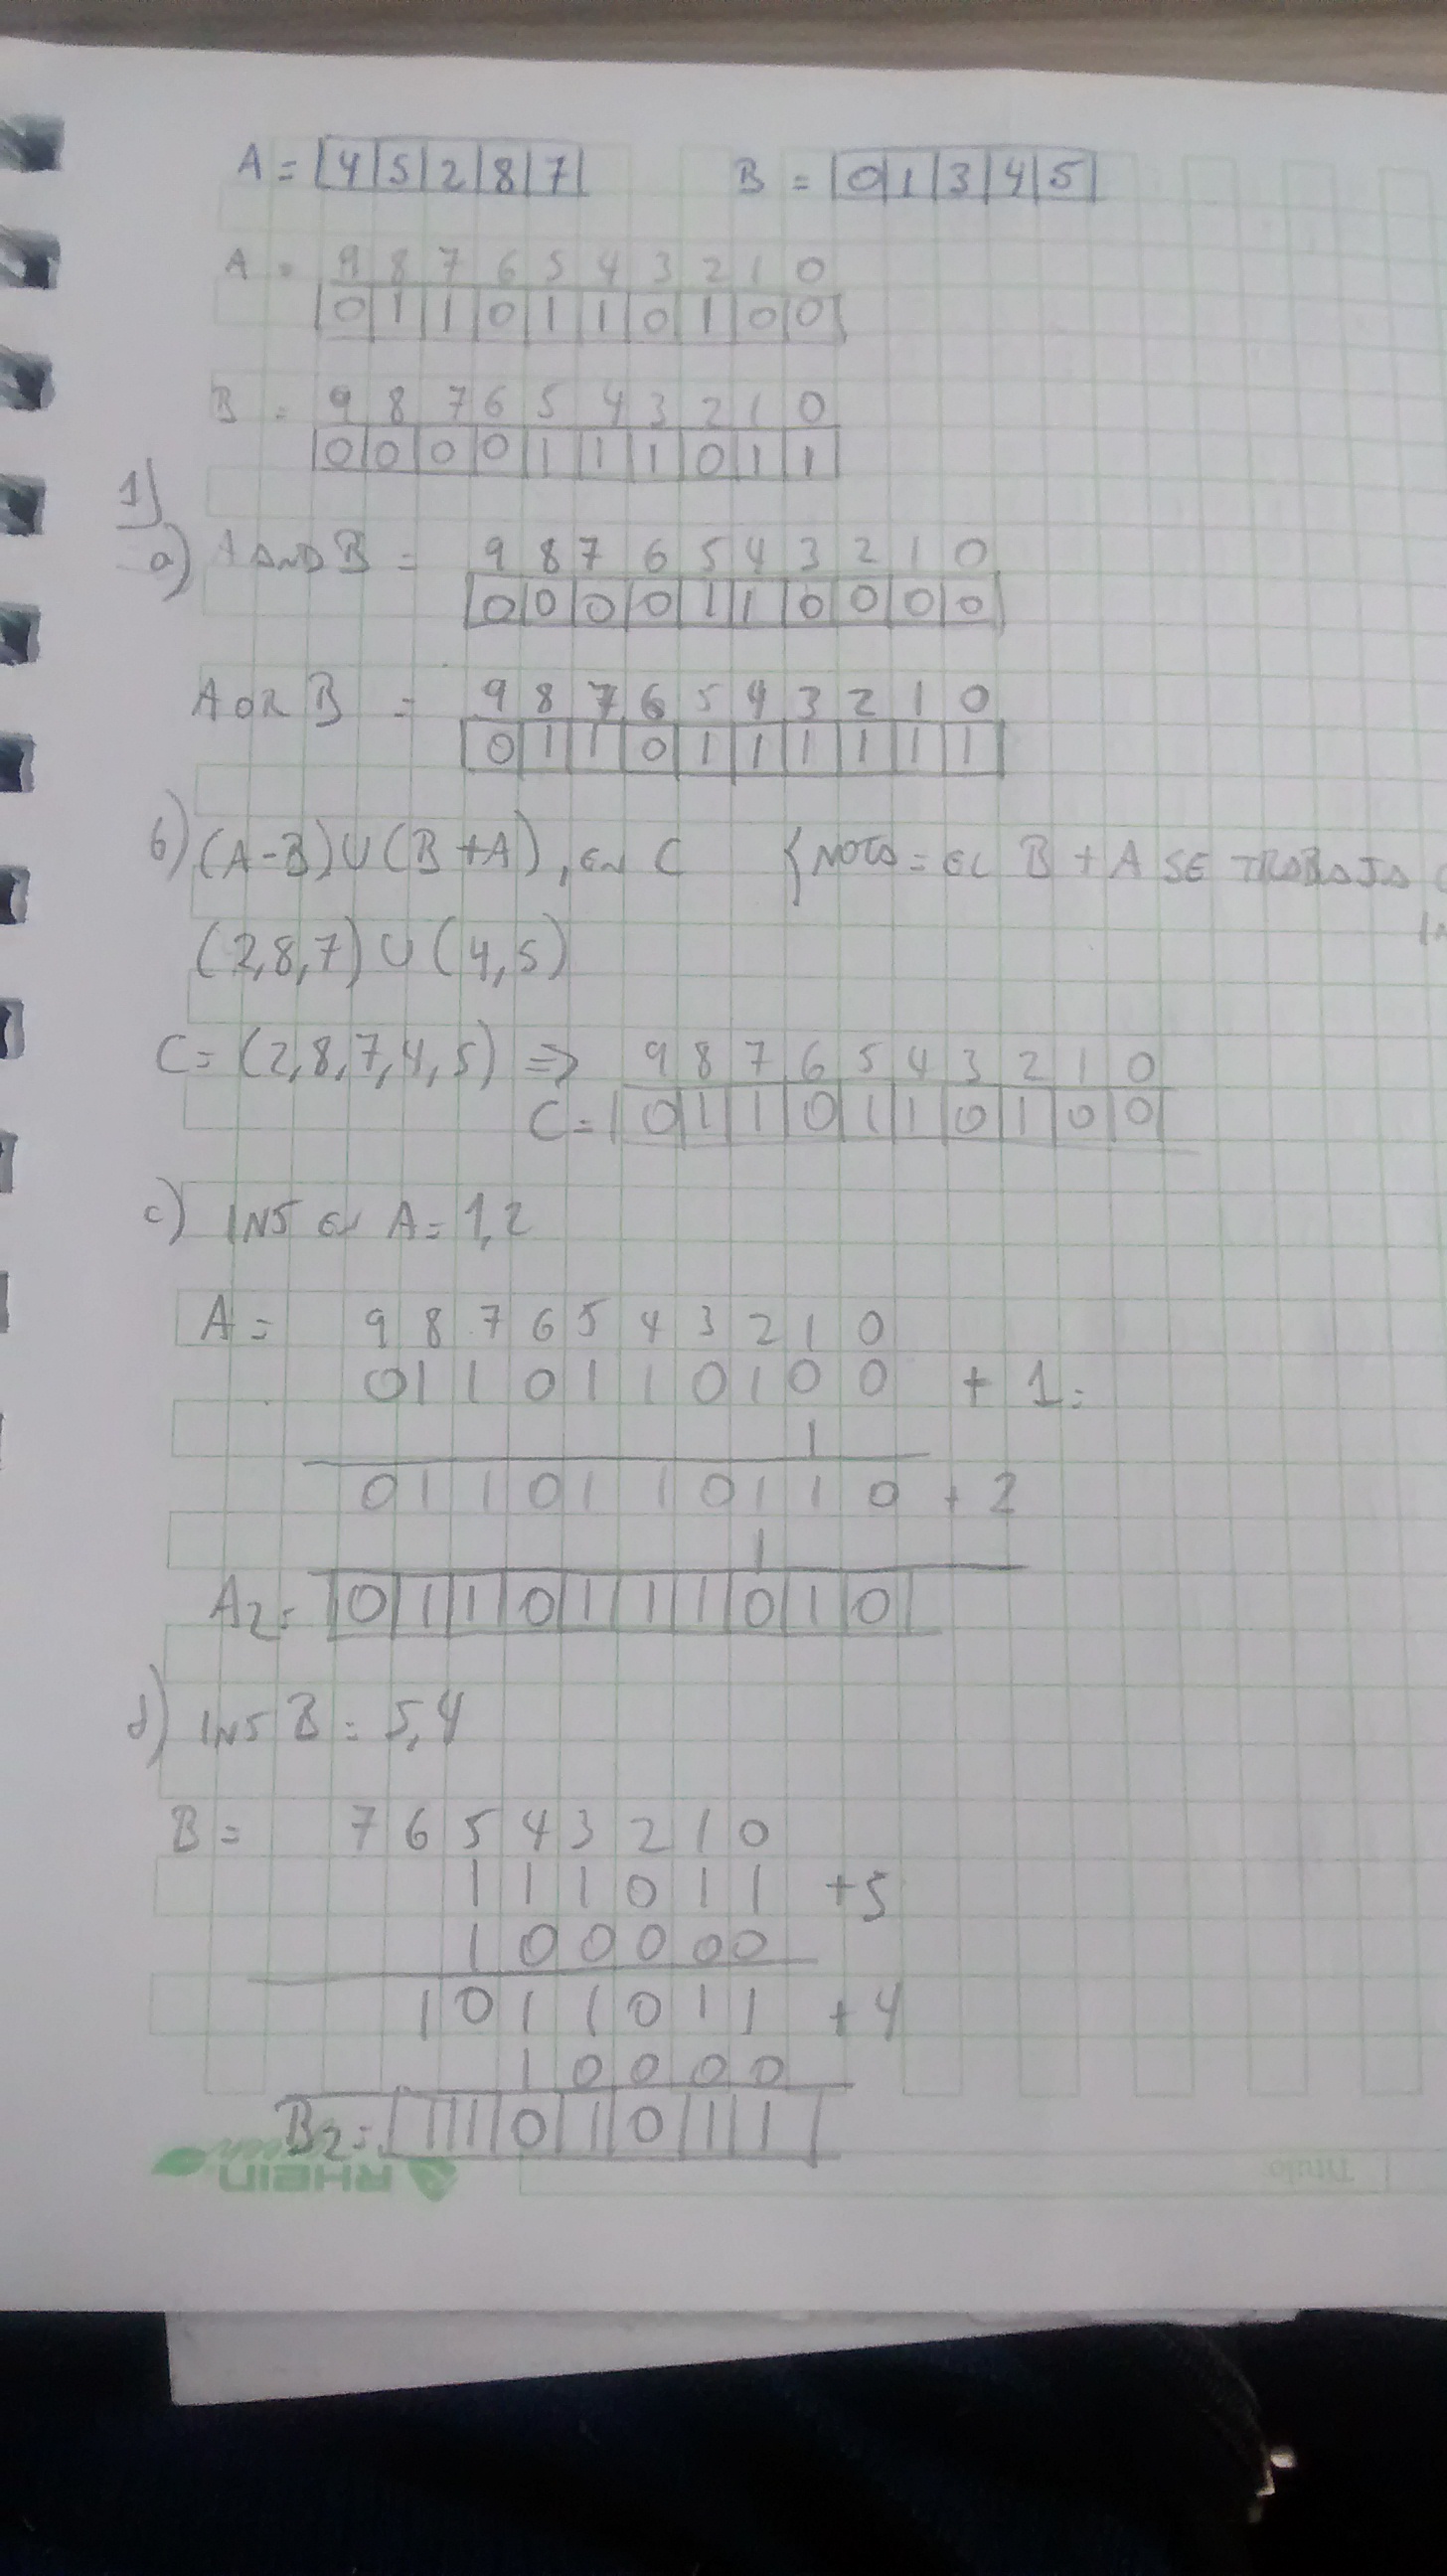 A = 4 5 2 8 7 B = 0 1 3 4 5
A = 9 8 7 6 5 4 3 2 1 0
0 1 1 0 1 1 0 1 0 0
B = 9 8 7 6 5 4 3 2 1 0
0 0 0 0 1 1 1 0 1 1
1)
a) A AND B = 9 8 7 6 5 4 3 2 1 0
0 0 0 0 1 1 0 0 0 0
A OR B = 9 8 7 6 5 4 3 2 1 0
0 1 1 0 1 1 1 1 1 1
b) (A-B)U(B+A), EN C { NOTA = EL B + A SE TRABAJA
(2,8,7) U (4,5)
C = (2,8,7,4,5) => 9 8 7 6 5 4 3 2 1 0
C = 0 1 1 0 1 1 0 1 0 0
c) INS EN A = 1,2
A = 9 8 7 6 5 4 3 2 1 0
0 1 1 0 1 1 0 1 0 0 + 1 =
1
0 1 1 0 1 1 0 1 1 0 + 2
1
A2 = 0 1 1 0 1 1 1 0 1 0
d) INS B = 5,4
B = 7 6 5 4 3 2 1 0
1 1 1 0 1 1 + 5
1 0 0 0 0 0
1 0 1 1 0 1 1 + 4
1 0 0 0 0
B2 = 1 1 0 1 0 1 1
RHEIN
Título